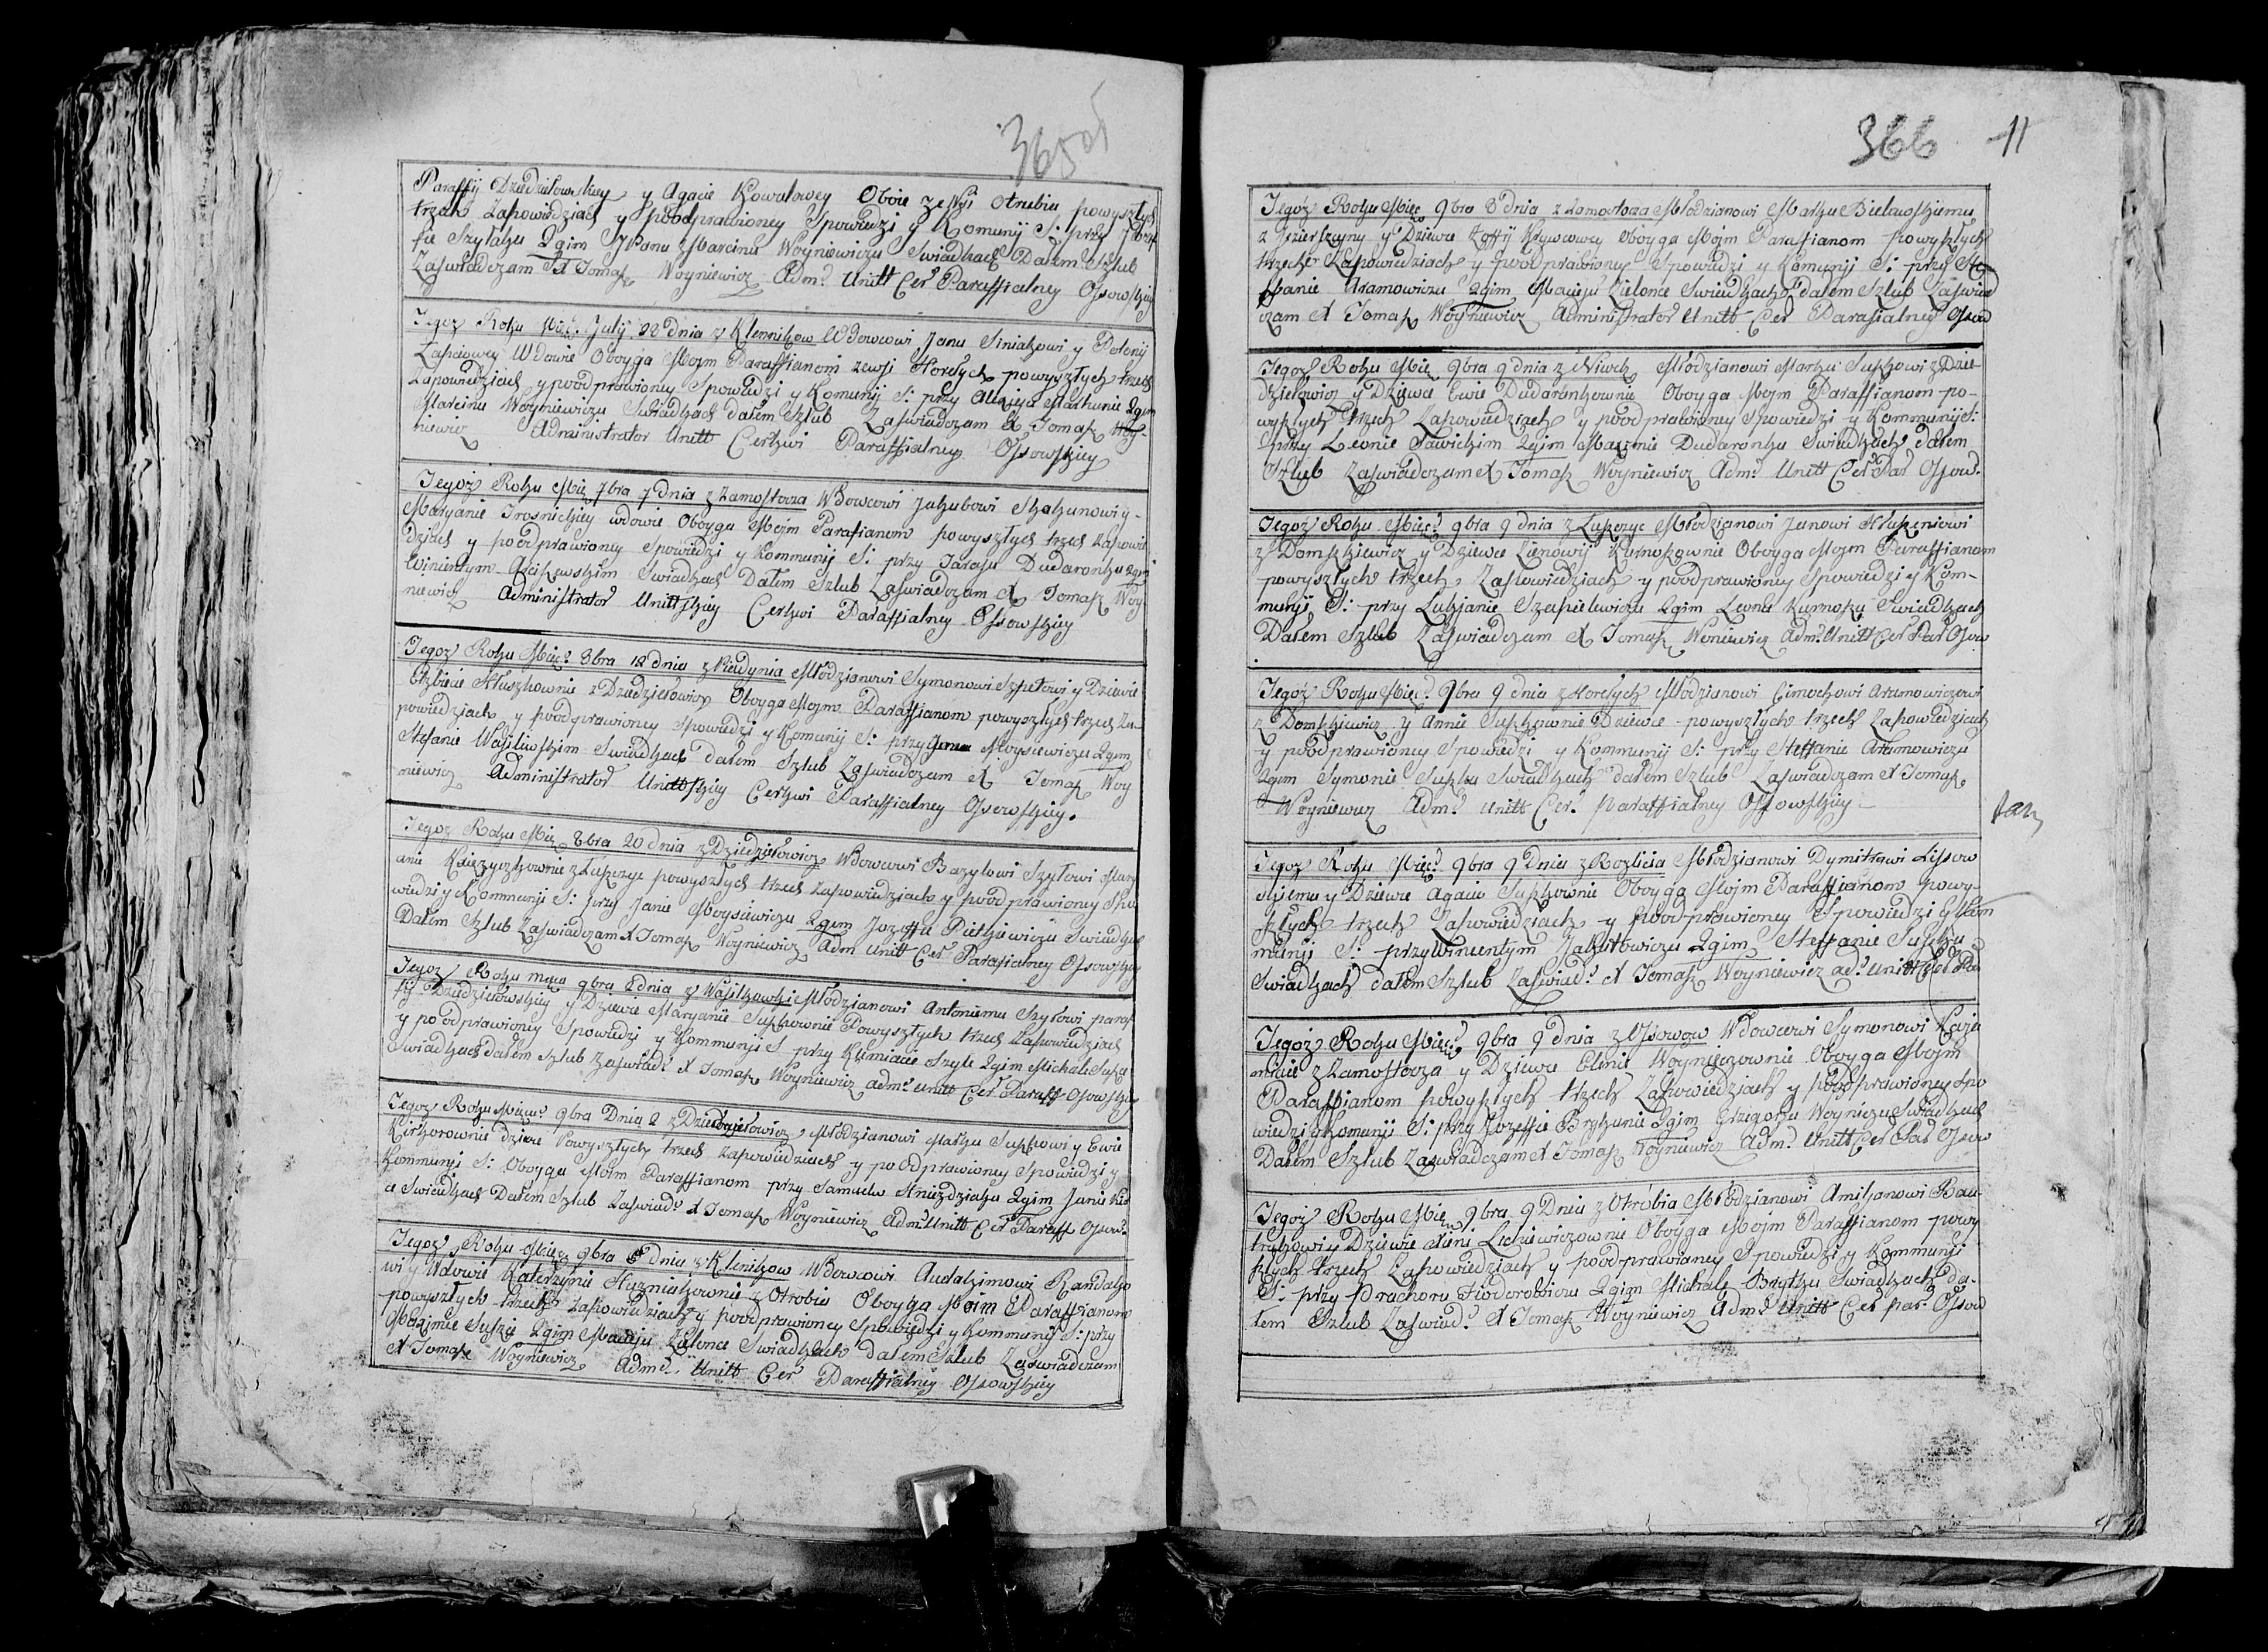 365 об
Paraffij Dziedziłowskiey y Agacie Kowalowey Oboie ze Wsi Otrubia powyszłych
trzech Zapowiedziach y poodprawioney Spowiedzi y Komunij S: przy Joze
fie Szyłaku 2gim JPanu Marcinu Woyniewiczu Swiadkach Dałem Szlub
Zaswiadczam X Tomasz Woyniewicz Adm: Unitt Cer Paraffialney Ossowskiey
Tegoz Roku Mie: July 22 dnia z Klennikow Wdowcowi Janu Siniakowi y Polonij
Łapciowey Wdowie Oboyga Mojm Paraffianom zewsi Horełych powyszłych trzech
Zapowiedziach y poodprawioney Spowiedzi y Komunij S: przy Alexieju Markunie 2gim
Marcinu Woyniewiczu Swiadkach dałem Szlub Zaswiadczam X Tomasz Woy-
niewicz Administrator Unitt Cerkwi Paraffialney Ossowskiey
Tegoż Roku Mie 7bra 7 dnia z Zamostocza Wdowcowi Jakubowi Skakunowi y-
Maryanie Trosnickiey wdowie Oboyga Mojm Parafianom powyszłych trzech Zapowie
dziach y poodprawioney Spowiedzi y Kommunij S: przy Tarasu Dudaronku 2gim
Winientym Swiadkach Dałem Szlub Zaswiadczam X Tomasz Woy
niewicz Administrator Unittskiey Cerkwi Paraffialney Ossowskiey
Tegoz Roku Mie: 8bra 12 dnia z Młodzianowi Symonowi Szpetowi y Dziewie
Elzbiecie Hłuszkownie z Dziedziełowicz Oboyga Mojm Paraffianom powyszłych trzech Za-
powiedziach y poodprawioney Spowiedzi y Komunij S: przy Moysiewiczu 2gim
Stefanie Wasilewskim Swiadkach dałem Szlub Zaswiadczam X Tomasz Woy
niewicz Administrator Unittskiey Cerkwi Paraffialney Ossowskiey.
Tegoz Roku Mie 8bra 20 dnia z Dziedziełowicz Wdowcowi Bazylowi Szyłowi Mary
anie z Łuszczyc powyszłych trzech Zapowiedziach y poodprawioney Spo
wiedzi y Kommunij S: przy Janie Moysiewiczu 2gim Jozeffu Pietkiewiczu Swiadkach
Dałem Szlub Zaswiadczam X Tomasz Woyniewicz Adm Unitt Cer Parafialney Ossowskiey
Tegoz Roku 9bra 2 dnia z Wasilkowki Młodzianowi Antoniemu Szyłowi paraf
fij Dziedziełowskiey y Dziewie Maryanie Suszkownie Powyszłych trzech Zapowiedziach
y poodprawioney Spowiedzi y Kommunij S przy Klimiacie Szyle 2gim Michale
Swiadkach dałem Szlub Zaswiad: X Tomasz Woyniewicz adm: Unitt Cer Paraff Ossowskiey
Tegoz Roku 9bra Dnia 2 z Dziedziełowicz Młodzianowi Marku Suszkowi y Ewie
Kirkorownie dziewie Powyszłych trzech Zapowiedziach y poodprawioney Spowiedzi y
Kommunij S: Oboyga Moim Paraffianom przy Samuelu Hniezdziału 2gim Janie
Swiadkach Dałem Szlub Zaswiad: X Tomasz Woyniewicz Adm: Unitt Cer Paraff Ossow:
Tegoz Roku Mie 9bra dnia z Klenikow Wdowcowi Audakimowi
wi y Wdowie Katerzynie Kuzniakownie z Otrobia Oboyga Moim Paraffianom
powyszłych trzech Zapowiedziach y poodprawioney Spowiedzi y Kommunij S: przy
Maximie Suszie 2gim Macieju Zielonce Swiadkach dałem Szlub Zaswiadczam
X Tomasz Woyniewicz Adm: Unitt Cer Paraffialney Ossowskiey
366 11
Tegoz Roku Mie 9bra 8 dnia z Zamostocza Młodzianowi Marku Bielawskiemu
z y Dziewie Zoffij Krywcowey Oboyga Mojm Parafianom powyszłych
trzech Zapowiedziach y poodprawioney Spowiedzi y Komunij S: przy Ste
panie Aramowiczu 2gim Macieju Zielonce Swiadkach dałem Szlub Zaswiad
czam X Tomasz Woyniewicz Administrator Unitt Cer Parafialney Ossow
Tegoz Roku Mie 9bra 9 dnia z Niwek Młodzianowi Marku Suszkowi z Dzie-
dziełowicz y Dziewie Ewie Dudaronkownie Oboyga Mojm Paraffianom po-
wyszłych trzech Zapowiedziach y poodprawioney Spowiedzi y Kommunij S:
przy Leonie Sawickim 2gim Maximie Dudaronku Swiadkach dałem
Szlub Zaswiadczam X Tomasz Woyniewicz Adm: Unitt Cer Par Ossow.
Tegoz Roku Mie: 9bra 9 dnia z Łuszczyc Młodzianowi Janowi Hłuszeniowi
z Domszkiewicz y Dziewie Zienowij Kurnoszownie Oboyga Mojm Paraffianom
powyszłych trzech Zapowiedziach y poodprawioney Spowiedzi y Kom-
munij S: przy Łukjanie Szapielewiczu 2gim Leonu Kurnoszu Swiadkach
Dałem Szlub Zaswiadczam X Tomasz Woniewicz Adm: Unitt Cer Par Ossow
Tegoz Roku Mie: 9bra 9 dnia z Horełych Młodzianowi Cimochowi Aramowiczowi
z Domszkiewicz y Annie Suszkownie Dziewce powyszłych trzech Zapowiedziach
y poodprawioney Spowiedzi y Kommunij S: przy Steffanie Aramowiczu
2gim Symonie Suszku Swiadkach dałem Szlub Zaswiadczam X Tomasz
Woyniewicz Adm: Unitt Cer: Paraffialney Ossowskiey
Tegoz Roku Mie: 9bra 9 Dnia z Rozlicia Młodzianowi Dymitrawi Lissow
skiemu y Dziewie Agacie Suszkownie Oboyga Mojm Paraffianom powy-
szłych trzech Zapowiedziach y poodprawioney Spowiedzi y Kom
munij S: przy Winientym Jakutowiczu 2gim Steffanie Suszku
Swiadkach dałem Szlub Zaswiad: X Tomasz Woyniewicz ad: Unitt Cer Par
Tegoz Roku Mie: 9bra 9 dnia z Ossowow Wdowcowi Symonowi
z Zamostocza y Dziewie Elenie Woyniczownie Oboyga Mojm
Paraffianom powyszłych trzech Zapowiedziach y poodprawioney Spo
wiedzi y Komunij S: przy Jozeffie Brykunie 2gim Grzegorzu Woyniczu Swiadkach
Dałem Szlub Zaswiadczam X Tomasz Woyniewicz Adm: Unitt Cer Par Ossow
Tegoz Roku Mie 9bra 9 Dnia z Otróbia Młodzianowi Amiljanowi Bau-
trukowi y Dziewie Xieni Lickiewiczownie Oboyga Mojm Paraffianom powy
szłych trzech Zapowiedziach y poodprawianey Spowiedzi y Kommunij
S: przy Prachoru Fiodorowiczu 2gim Michale Brytku Swiadkach da-
łem Szlub Zaswiad: X Tomasz Woyniewicz Adm: Unitt Cer par: Ossow